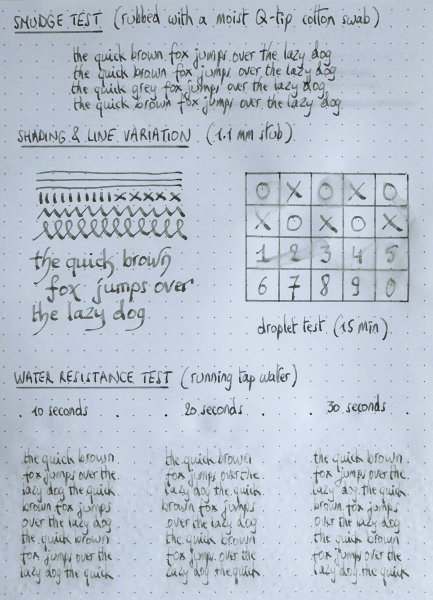 SMUDGE TEST (rubbed with a moist Q-tip cotton swab)
the quick brown fox jumps over the lazy dog
the quick brown fox jumps over the lazy dog
the quick grey fox jumps over the lazy dog
the quick brown fox jumps over the lazy dog
SHADING & LINE VARIATION (1.1 mm stub)
the quick brown
fox jumps over
the lazy dog
O X O X O
X O X O X
1 2 3 4 5
6 7 8 9 0
droplet test (15 min)
WATER RESISTANCE TEST (running tap water)
10 seconds
the quick brown
fox jumps over the
lazy dog the quick
brown fox jumps
over the lazy dog
the quick brown
fox jumps over the
lazy dog the quick
20 seconds
the quick brown
fox jumps over the
lazy dog the quick
brown fox jumps
over the lazy dog
the quick brown
fox jumps over the
lazy dog the quick
30 seconds
the quick brown
fox jumps over the
lazy dog the quick
brown fox jumps
over the lazy dog
the quick brown
fox jumps over the
lazy dog the quick